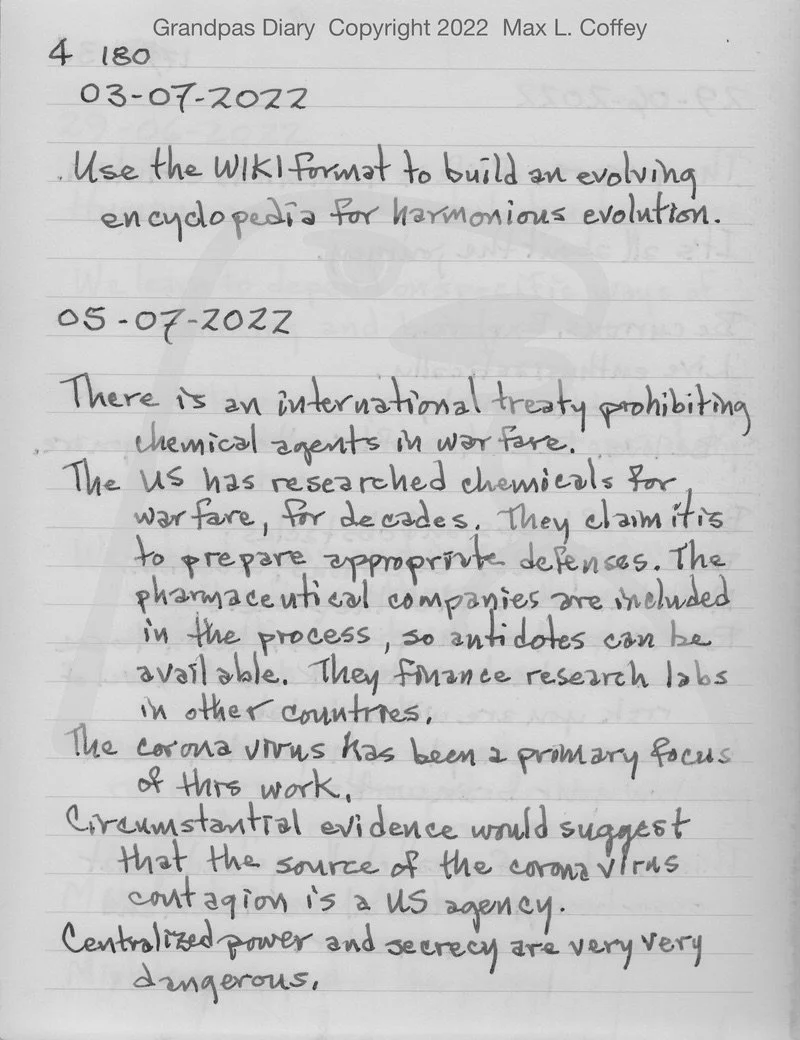 Grandpas Diary Copyright 2022 Max L. Coffey
4 180
03-07-2022
. Use the WIKI format to build an evolving
encyclopedia for harmonious evolution.
05-07-2022
There is an international treaty prohibiting
chemical agents in warfare.
The US has researched chemicals for
warfare, for decades. They claim it is
to prepare appropriate defenses. The
pharmaceutical companies are included
in the process, so antidotes can be
available. They finance research labs
in other countries.
The corona virus has been a primary focus
of this work.
Circumstantial evidence would suggest
that the source of the corona virus
contagion is a US agency.
Centralized power and secrecy are very very
dangerous.